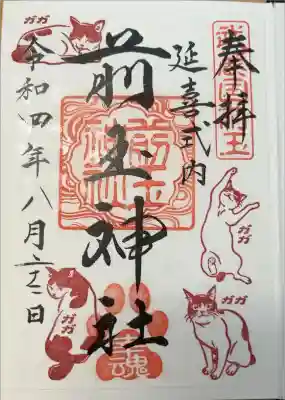 奉拝
延喜式内
前玉神社
令和四年八月 日
前玉
神社
魂
ガガ
ガガ
ガガ
ガガ